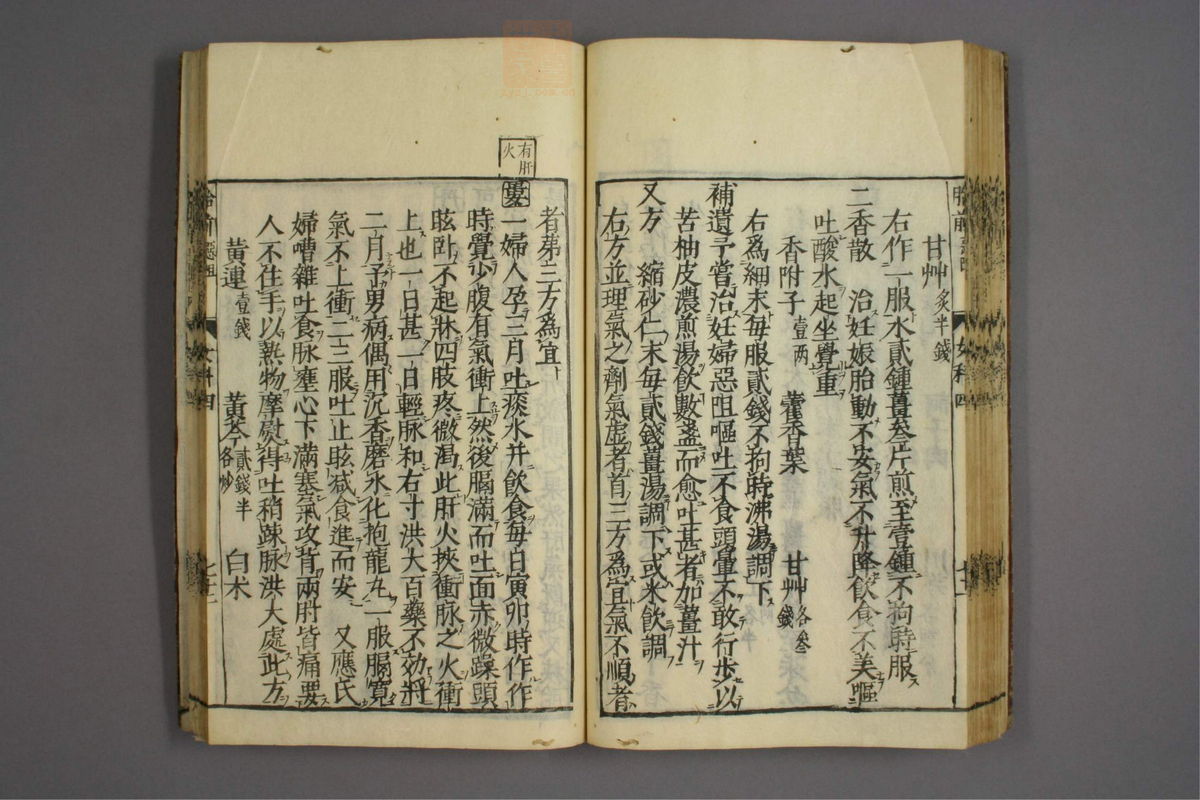 甘艸 炙半錢
右作一服水貳鍾薑叁片煎至壹鍾不拘時服
二香散 治妊娠胎動不安氣不升降飲食不美嘔
吐酸水起坐覺重
香附子 壹两 藿香葉 甘艸 各叁錢
右爲細末每服貳錢不拘時沸湯調下
補遺予嘗治妊婦惡阻嘔吐不食頭暈不敢行步以
苦柚皮濃煎湯飲數盞而愈吐甚者加薑汁
又方 縮砂仁末每貳錢薑湯調下或米飲調
右方並理氣之劑氣虛者首三方爲宜氣不順者
者苐三方爲宜
有肝火
一婦人孕三月吐痰水并飲食每日寅卯時作作
時覺少腹有氣衝上然後膈滿而吐面赤微躁頭
眩卧不起牀四肢疼微渴此肝火挾衝脉之火衝
上也一日甚一日輕脉和右寸洪大百藥不効將
二月予男病偶用沉香磨水化抱龍丸一服膈寬
氣不上衝二三服吐止眩减食進而安 又應氏
婦嘈雜吐食脉壅心下滿塞氣攻背兩肘皆痛要
人不住手以熱物摩熨得吐稍踈脉洪大處此方
黃連 壹錢 黃芩 貳錢半各炒 白术